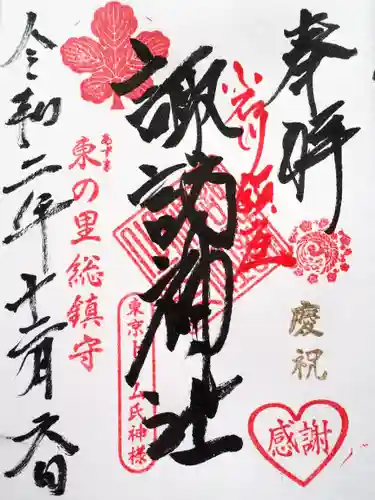 奉拝
慶祝
感謝
諏訪神社
東京ドーム氏神様
あずま
東の里総鎮守
令和二年十二月